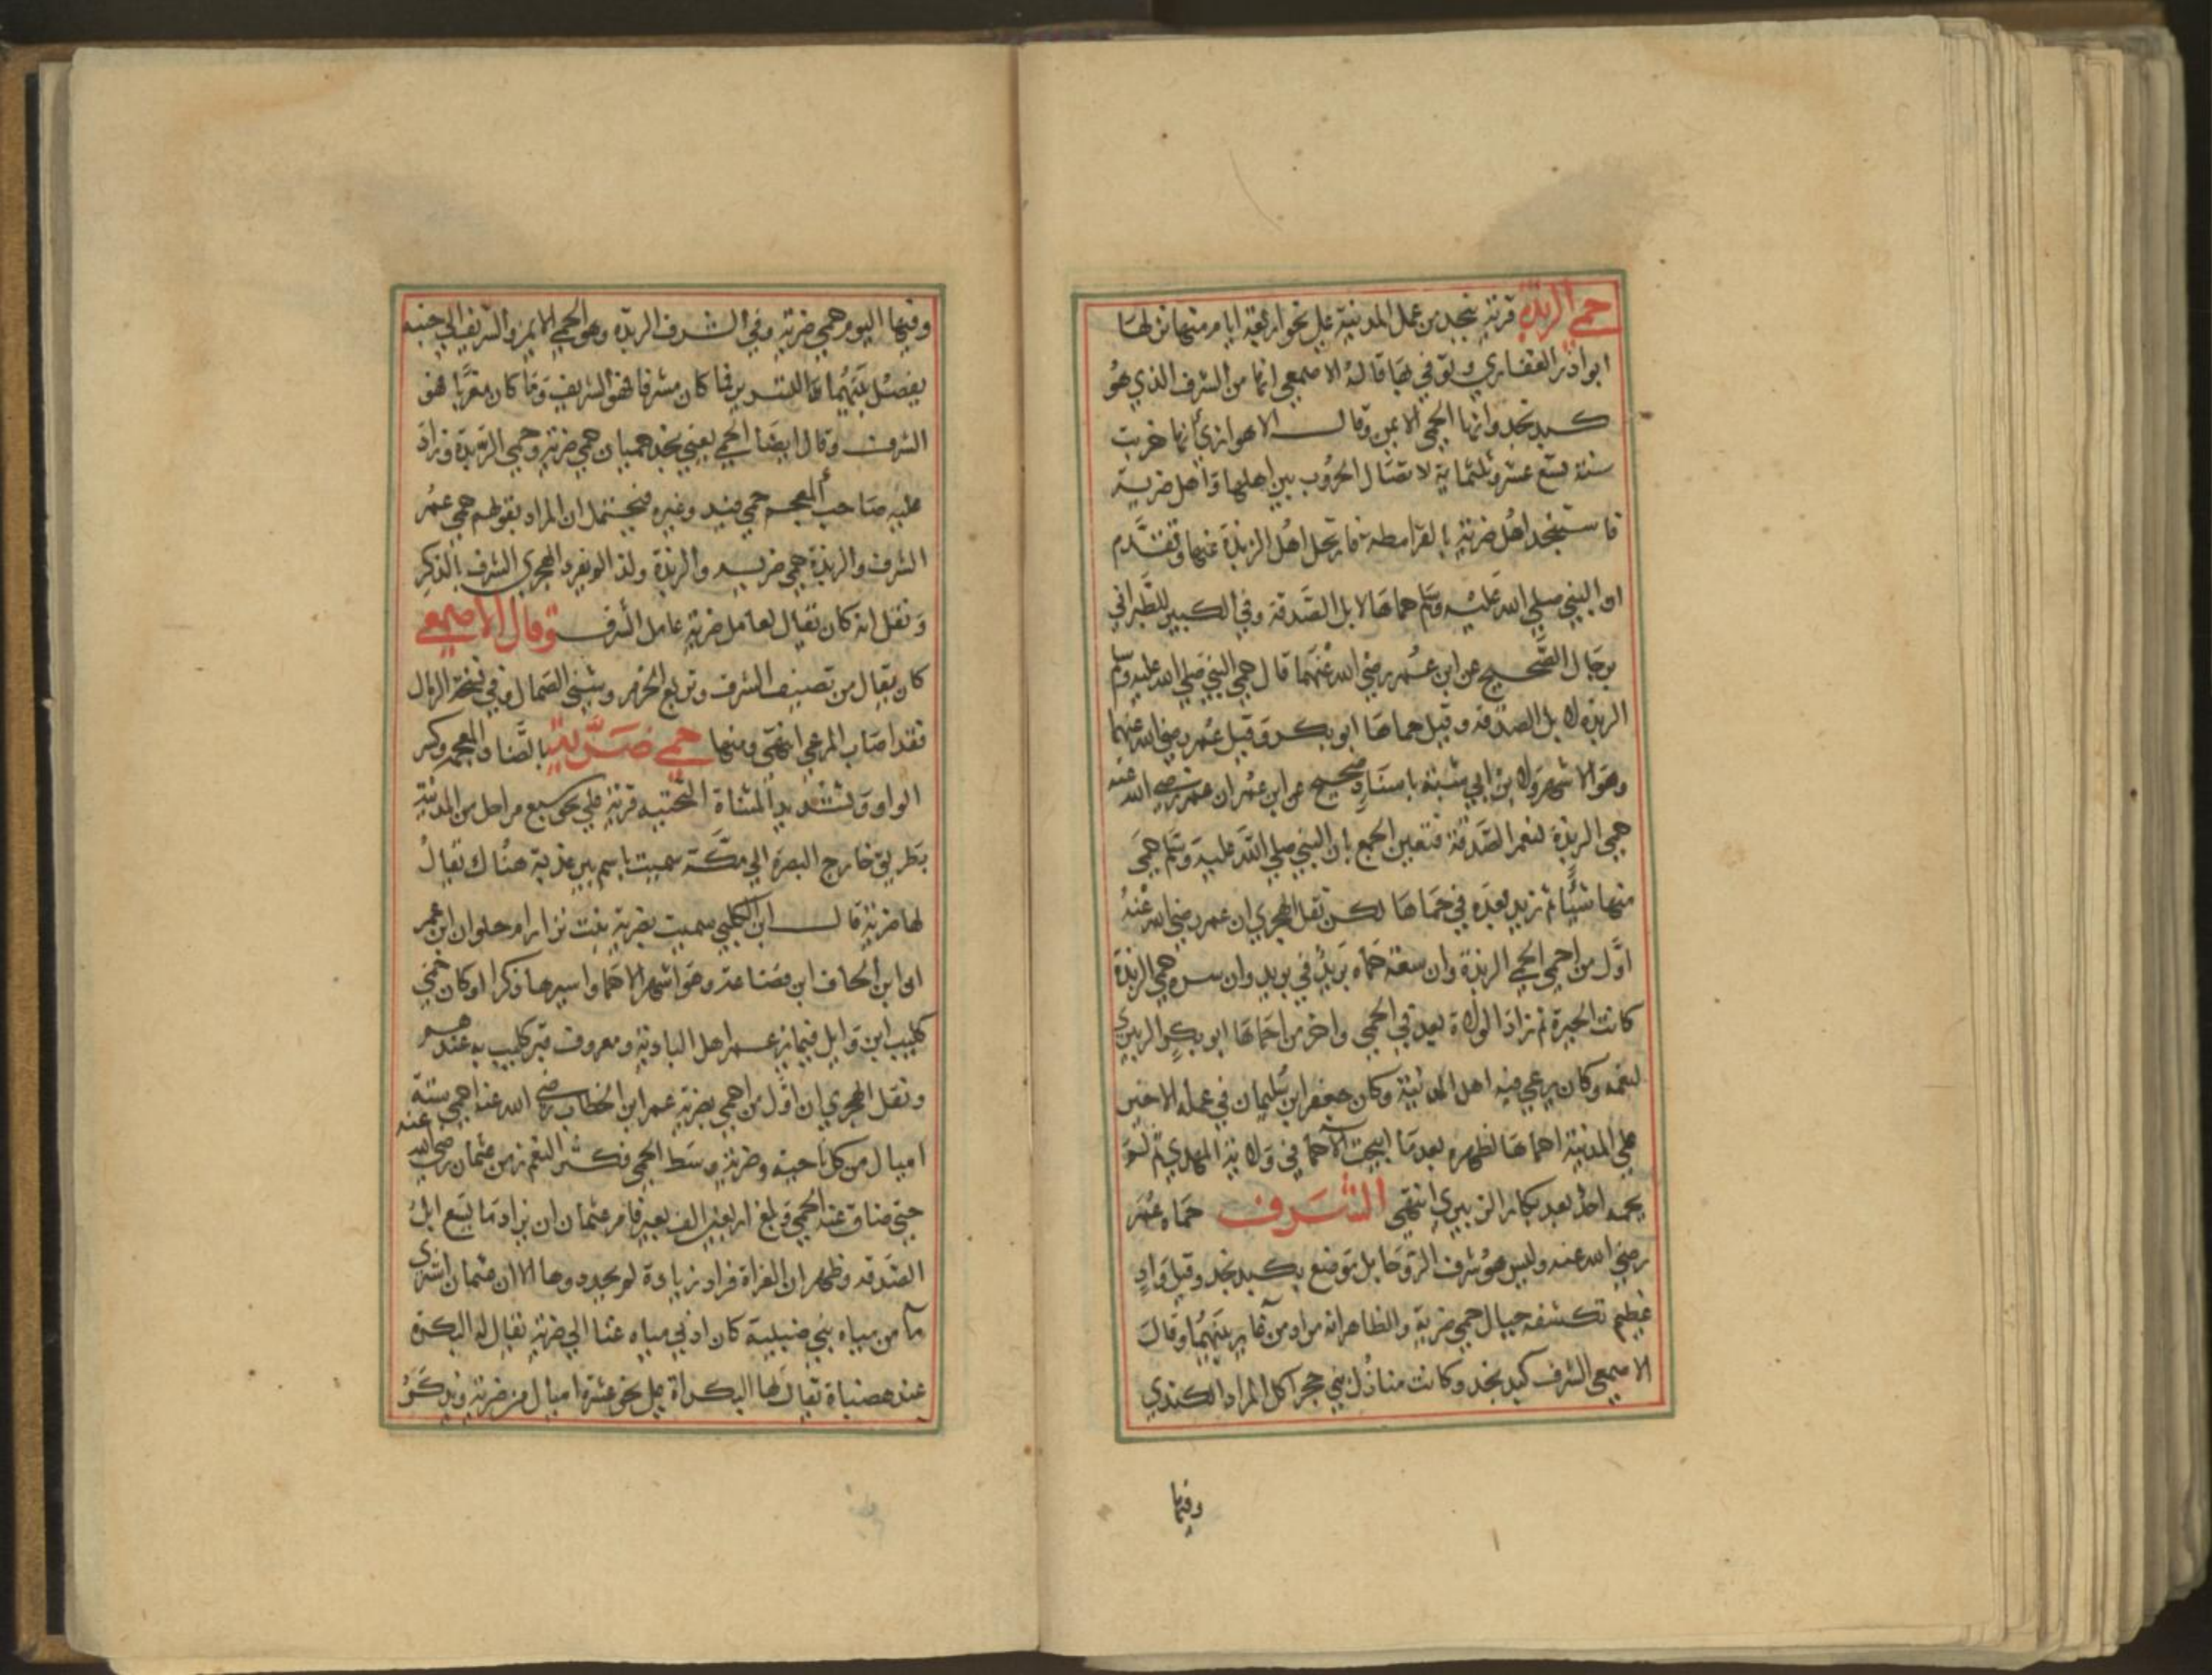 حمي الربذة قرية بنجد من عمل المدينة علي نحو اربعة ايام منها نزلها
ابوا ذر الغفاري وتوفي بها قاله الاصمعي انها من الشرف الذي هو
كبد نجد وانها الحمي الايمن وقال الاهوازي انها خربت
سنة تسع عشر وثلثماية لاتصال الحروب بين اهلها واهل ضرية
فاستنجد اهل ضرية بالقرامطه فارتحل اهل الربذة عنها وتقدم
ان النبي صلي الله عليه وسلم حماها لابل الصدقة وفي الكبير للطبراني
برجال الصحيح عن ابن عمر رضي الله عنهما قال حمي النبي صلي الله عليه وسلم
الربذه لابل الصدقه وقيل حماها ابو بكر وقيل عمر رضي الله عنهما
وهو الاشهر ولابن ابي شبة باسناد صحيح عن ابن عمر ان عمر رضي الله عنه
حمي الربذة لنعم الصدقة فتعين الجمع بان النبي صلي الله عليه وسلم حمي
منها شيأ ثم زيد بعده في حماها لكن نقل الهجري ان عمر رضي الله عنه
اول من احمي الحمي الربذة وان سعة حماه بريد في بريد وان سره حمي الربذة
كانت الحبرة ثم زاد الولاة بعد في الحمي واخر من احماها ابو بكر الزبيري
لنعمه وكان يرعي فيه اهل المدينة وكان جعفر ابن سليمان في عمله الاخير
علي المدينة احماها لظهره بعد ما ابيحت الاحما في ولاية المهدي ثم لم
يحمه احد بعد بكار الزبيري انتهي الشرف حماه عمر
رضي الله عنه وليس هو شرف الروحا بل موضع بكبد نجد وقيل واد
عظيم تكتنفه جبال حمي ضرية والظاهر انه مراد من غاير بينهما وقال
الاصمعي الشرف كبد نجد وكانت منازل بني حجر اكل المرار الكندي
وفيها
وفيها اليوم حمي ضرية وفي الشرف الربذه وهو الحمي الايمن والشريف الي جنبه
يفصل بينهما التسرير فما كان مشرقا فهو الشريف وما كان مغربا فهو
الشرف وقال ايضا الحمي يعني بنجد حميان حمي ضرية وحمي الربذة وزاد
عليه صاحب المعجم حمي فيد وغيره فيحتمل ان المراد بقولهم حمي عمر
الشرف والربذة حمي ضريه والربذة ولذا لم يفرد الهجري الشرف بالذكر
ونقل انه كان يقال لعامل ضرية عامل الشرف وقال الاصمعي
كان يقال من تصيف الشرف وتربع الحزم وشتي الصمال وفي نسخة الرمال
فقد اصاب المرعي انتهي ومنها حمي ضرية بالضاد المعجمه وكسر
الواو وتشديد المثناة التحتيه قرية علي نحو سبع مراحل من المدينة
بطريق خارج البصرة الي مكة سميت باسم بير عذبة هناك يقال
لها ضرية قال ابن الكلبي سميت بضرية بنت نزار ام حلوان ابن عمر
ان ابن الحاف ابن قضاعة وهو اشهر الاحما واسيرها ذكرا وكان حمي
كليب ابن وايل فيما يزعم اهل البادية ومعروف قبر كليب به عندهم
ونقل الهجري ان اول من احمي بضرية عمر ابن الخطاب رضي الله عنه احمي ستة
اميال من كل ناحية وضرية وسط الحمي فكثر النعم زمن عثمان رضي الله عنه
حتي ضاق عنه الحمي وبلغ اربعين الف بعير فامر عثمان ان يزاد ما يسع ابل
الصدقه وظهران الغزاة فزاد زيادة لم يحددوها الا ان عثمان اشتري
مآ من مياه بني ضبيبة كان ادني مياه غنا الي ضرية يقال له البكرة
عند هضباة يقال لها البكراة علي نحو عشرة اميال من ضرية